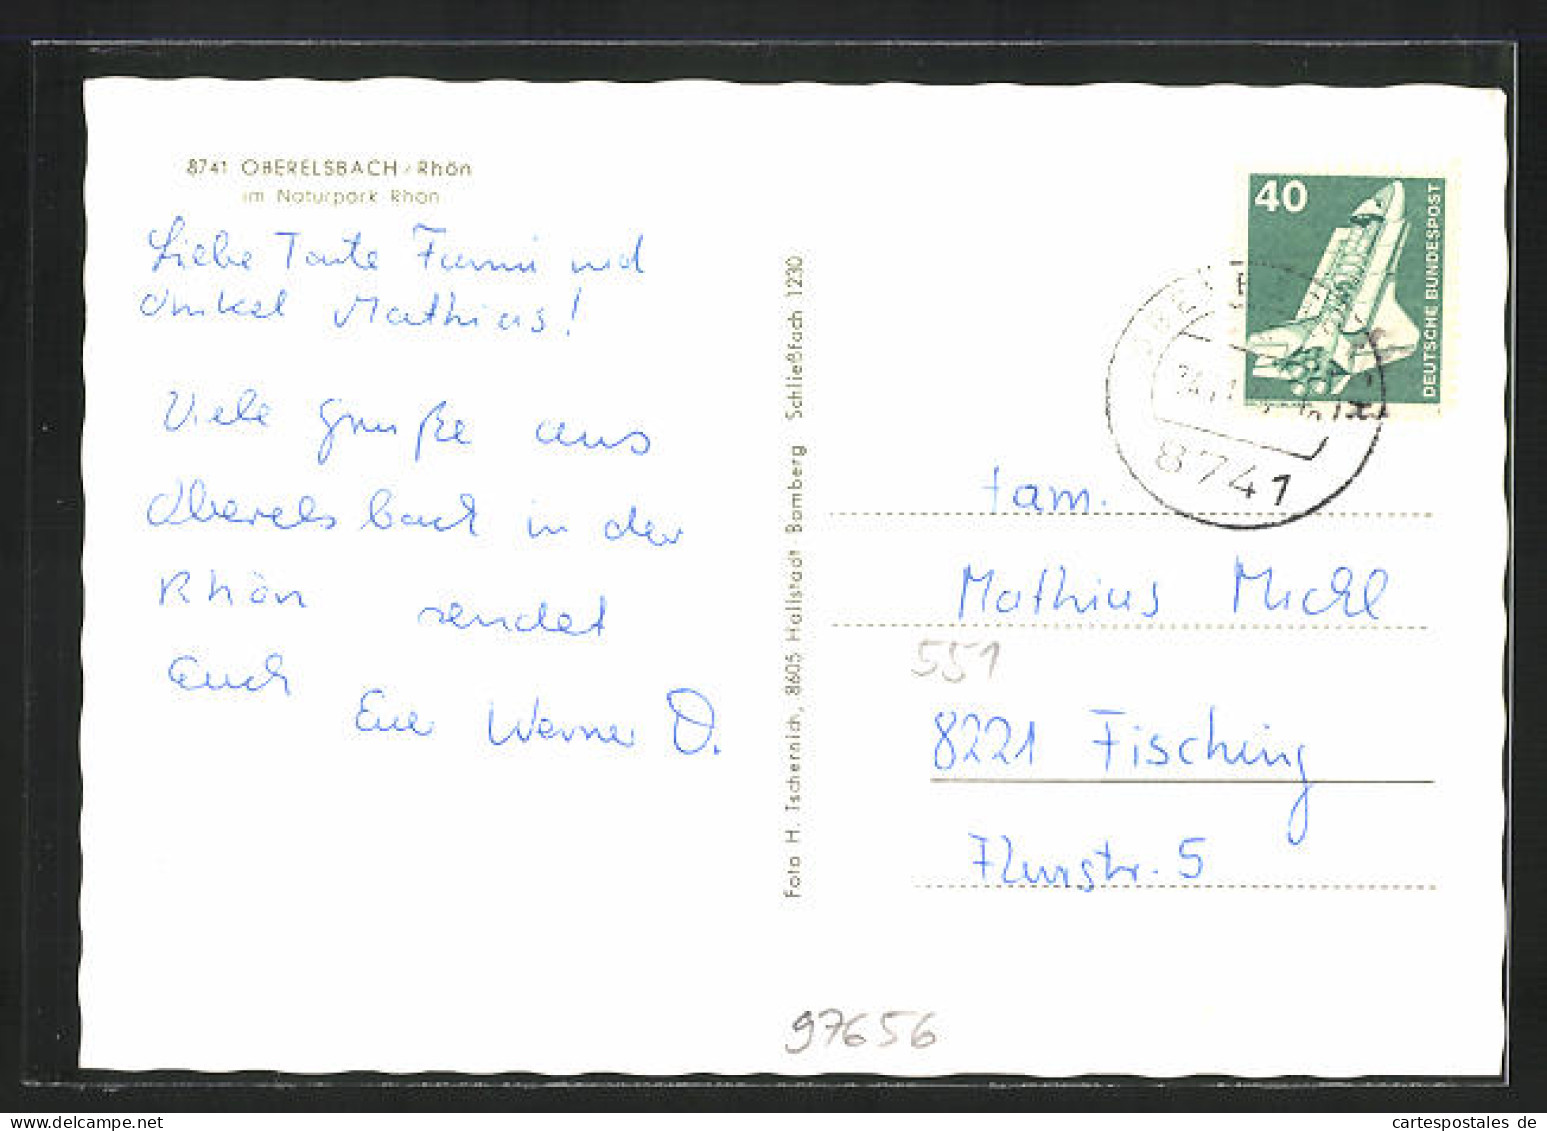 8741 OBERELSBACH/Rhön
im Naturpark Rhön
Liebe Tante Fanni und
Onkel Mathias!
Viele Grüße aus
Oberelsbach in der
Rhön sendet
Euch
Eue Werner O.
Foto H. Tschernich, 8605 Hallstadt-Bamberg Schließfach 1230
40
DEUTSCHE BUNDESPOST
8741
Fam.
Mathias Mickl
551
8221 Fisching
Flurstr. 5
97656
cartespostales de